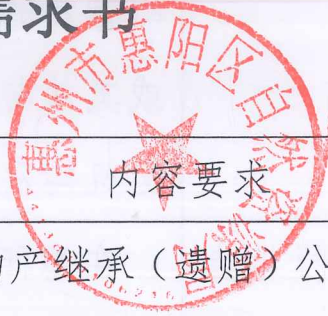 需求书
惠州市惠阳区自然资源局
内容要求
产继承（遗赠）公